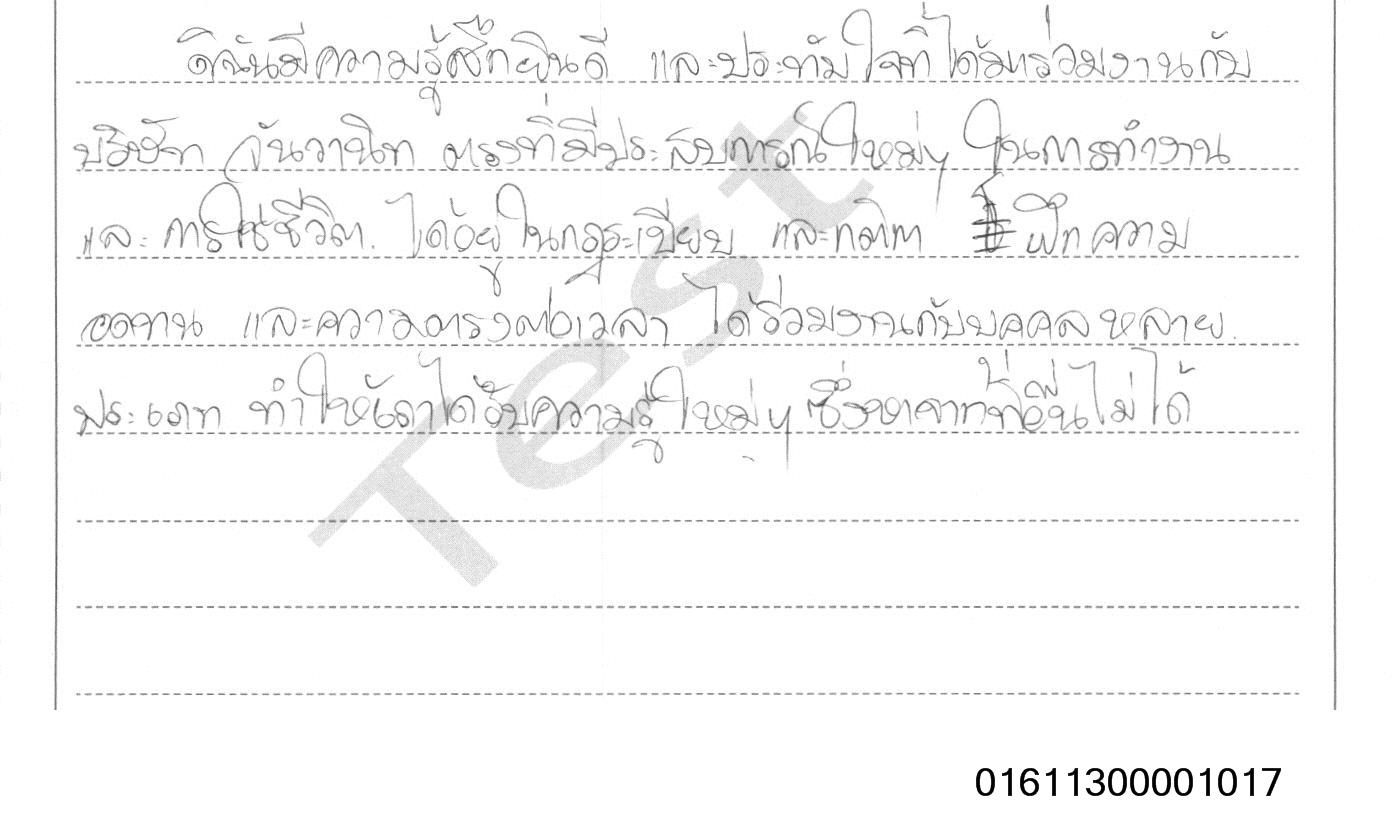 ดิฉันมีความรู้สึกยินดี และประทับใจที่ได้มาร่วมงานกับ
บริษัท จันวานิช ตรงที่มีประสบการณ์ใหม่ๆ ในการทำงาน
และ การใช้ชีวิต. ได้อยู่ในกฎระเบียบ และกติกา ฝึกความ
อดทน และความตรงต่อเวลา ได้ร่วมงานกับบุคคลหลาย.
ประเภท ทำให้เราได้รับความรู้ใหม่ๆ ซึ่งหาจากที่อื่นไม่ได้
Test
01611300001017